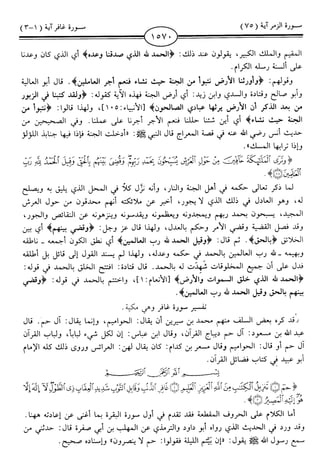 سورة الزمر آية (٧٥)
سورة غافر آية (١-٣)
١٥٧٠
المقيم والملك الكبير، يقولون عند ذلك: ﴿الحمد لله الذي صدقنا وعده﴾ أي الذي كان وعدنا
على ألسنة رسله الكرام.
وقولهم: ﴿وأورثنا الأرض نتبوأ من الجنة حيث نشاء فنعم أجر العاملين﴾. قال أبو العالية
وأبو صالح وقتادة والسدي وابن زيد: أي أرض الجنة فهذه الآية كقوله: ﴿ولقد كتبنا في الزبور
من بعد الذكر أن الأرض يرثها عبادي الصالحون﴾ [الأنبياء: ١٠٥]، ولهذا قالوا: ﴿نتبوأ من
الجنة حيث نشاء﴾ أي أين شئنا حللنا فنعم الأجر أجرنا على عملنا. وفي الصحيحين من
حديث أنس رضي الله عنه في قصة المعراج قال النبي ﷺ: «أدخلت الجنة فإذا فيها جنابذ اللؤلؤ
وإذا ترابها المسك».
﴿وَتَرَى الْمَلَائِكَةَ حَافِّينَ مِنْ حَوْلِ الْعَرْشِ يُسَبِّحُونَ بِحَمْدِ رَبِّهِمْ وَقُضِيَ بَيْنَهُم بِالْحَقِّ وَقِيلَ الْحَمْدُ لِلَّهِ رَبِّ
الْعَالَمِينَ﴾
لما ذكر تعالى حكمه في أهل الجنة والنار، وأنه نزل كلاً في المحل الذي يليق به ويصلح
له، وهو العادل في ذلك الذي لا يجور، أخبر عن ملائكته أنهم محدقون من حول العرش
المجيد، يسبحون بحمد ربهم ويمجدونه ويعظمونه ويقدسونه وينزهونه عن النقائص والجور،
وقد فصل القضية وقضي الأمر وحكم بالعدل، ولهذا قال عز وجل: ﴿وقضي بينهم﴾ أي بين
الخلائق ﴿بالحق﴾. ثم قال: ﴿وقيل الحمد لله رب العالمين﴾ أي نطق الكون أجمعه ـ ناطقه
وبهيمه ـ لله رب العالمين بالحمد في حكمه وعدله، ولهذا لم يسند القول إلى قائل بل أطلقه
فدل على أن جميع المخلوقات شهدت له بالحمد. قال قتادة: افتتح الخلق بالحمد في قوله:
﴿الحمد لله الذي خلق السموات والأرض﴾ [الأنعام: ١]، واختتم بالحمد في قوله: ﴿وقضي
بينهم بالحق وقيل الحمد لله رب العالمين﴾.
تفسير سورة غافر وهي مكية.
قد كره بعض السلف منهم محمد بن سيرين أن يقال: الحواميم، وإنما يقال: آل حم. قال
عبد الله بن مسعود: آل حم ديباج القرآن، وقال ابن عباس: إن لكل شيء لباباً، ولباب القرآن
آل حم أو قال: الحواميم وقال مسعر بن كدام: كان يقال لهن: العرائس وروى ذلك كله الإمام
أبو عبيد في كتاب فضائل القرآن.
بسم الله الرحمن الرحيم
﴿حم تَنزِيلُ الْكِتَابِ مِنَ اللَّهِ الْعَزِيزِ الْعَلِيمِ غَافِرِ الذَّنبِ وَقَابِلِ التَّوْبِ شَدِيدِ الْعِقَابِ ذِي الطَّوْلِ لَا إِلَهَ إِلَّا
هُوَ إِلَيْهِ الْمَصِيرُ﴾.
أما الكلام على الحروف المقطعة فقد تقدم في أول سورة البقرة بما أغنى عن إعادته ههنا.
وقد ورد في الحديث الذي رواه أبو داود والترمذي عن المهلب بن أبي صفرة قال: حدثني من
سمع رسول الله ﷺ يقول: «إن بيتم الليلة فقولوا: حم لا ينصرون» وإسناده صحيح.